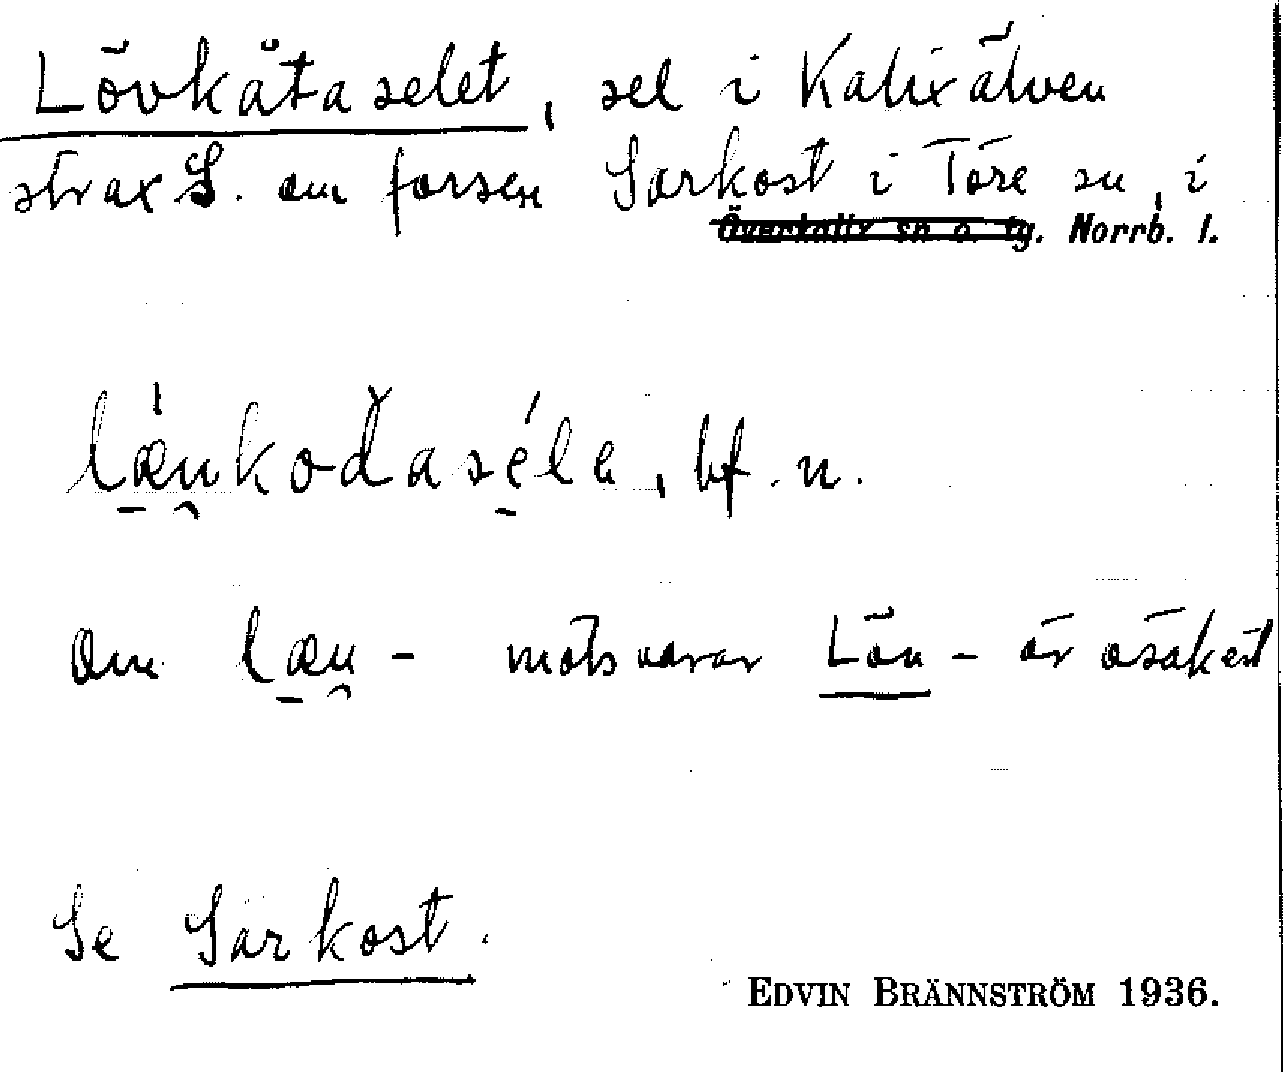 Lövkåtaselet, sel i Kalixälven
strax S. om forsen Särkost i Töre sn, i
Överkalix sn o. tg. Norrb. l.
læukoðaséle, bf. n.
Om læu - motsvarar Löv - är osäkert
Se Särkost.
EDVIN BRÄNNSTRÖM 1936.